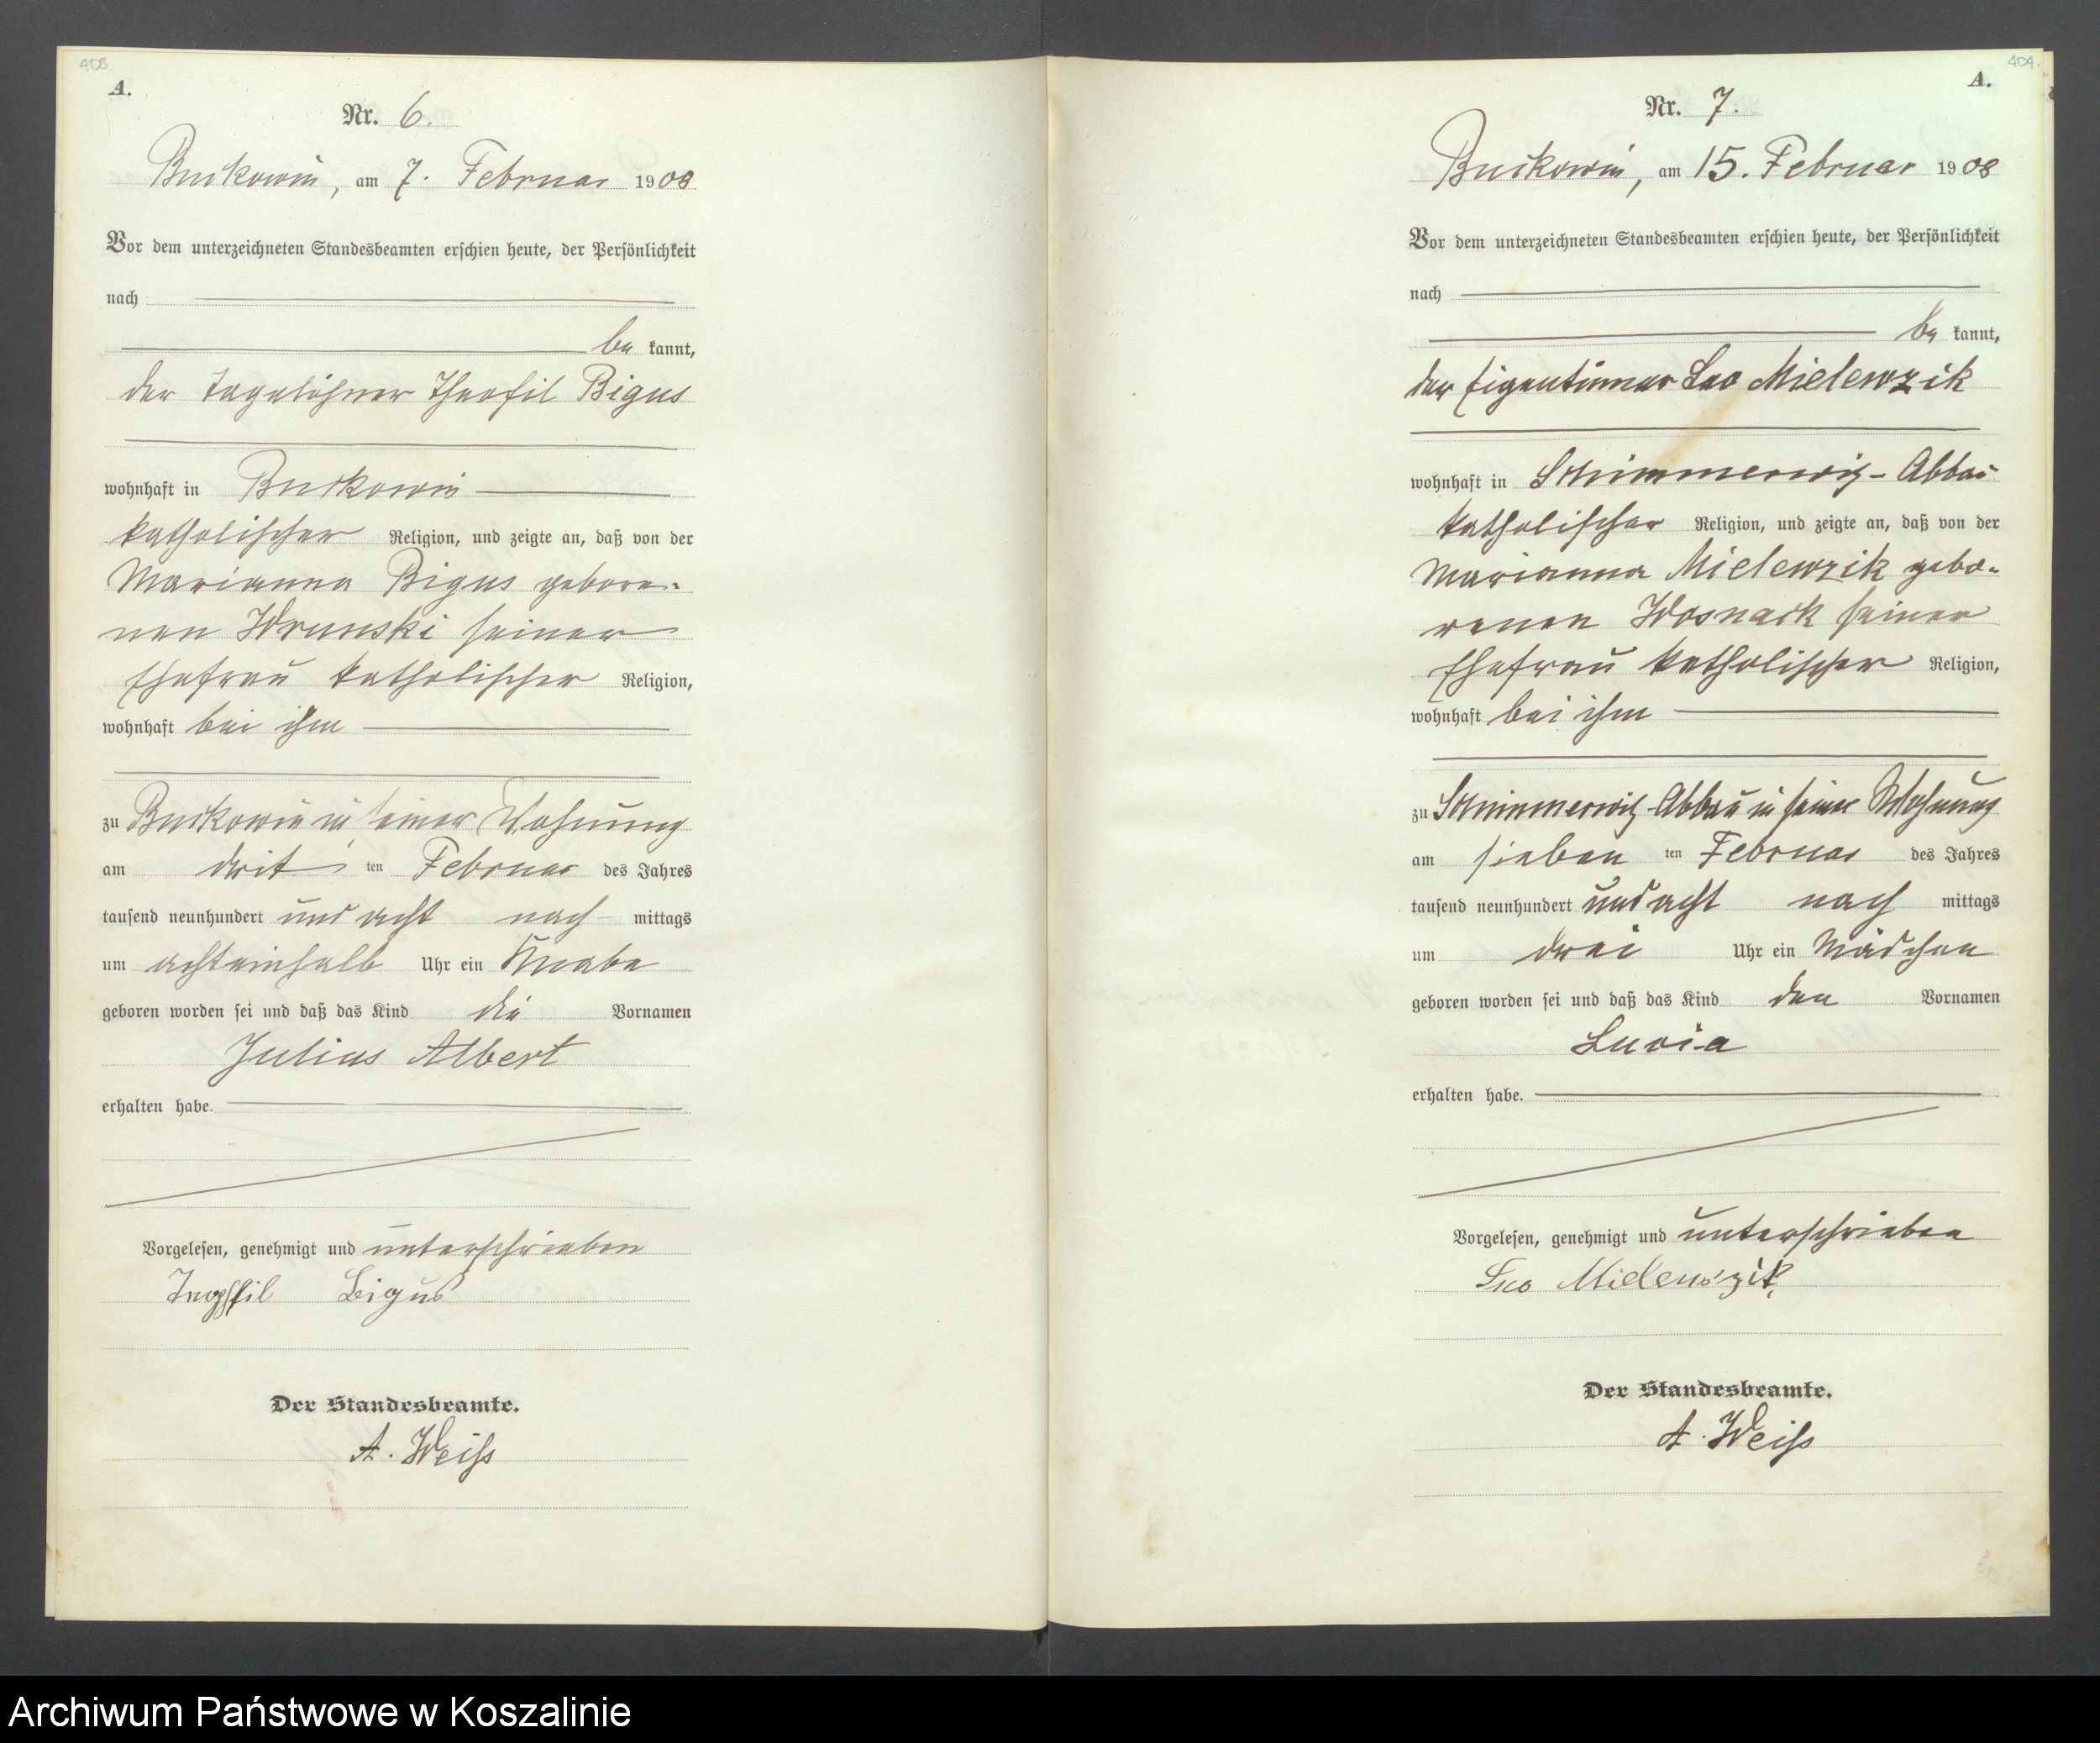 408.
A.
Nr. 6.
Buckowin, am 7. Februar 1908
Vor dem unterzeichneten Standesbeamten erschien heute, der Persönlichkeit
nach
be kannt,
der Tagelöhner Theofil Bigus
wohnhaft in Buckowin
katholischer Religion, und zeigte an, daß von der
Marianna Bigus gebore-
nen Wrunski seiner
Ehefrau katholischer Religion,
wohnhaft bei ihm
zu Buckowin in seiner Wohnung
am drit ten Februar des Jahres
tausend neunhundert und acht nach mittags
um achteinhalb Uhr ein Knabe
geboren worden sei und daß das Kind die Vornamen
Julius Albert
erhalten habe.
Vorgelesen, genehmigt und unterschrieben
Bigus
Der Standesbeamte.
A. Weiß
404.
A.
Nr. 7.
Buckowin, am 15. Februar 1908
Vor dem unterzeichneten Standesbeamten erschien heute, der Persönlichkeit
nach
be kannt,
der Eigentümer Leo Mielewzik
wohnhaft in Schimmerwitz-Abbau
katholischer Religion, und zeigte an, daß von der
Marianna Mielewzik gebo-
renen Wosnack seiner
Ehefrau katholischer Religion,
wohnhaft bei ihm
zu Schimmerwitz-Abbau in seiner Wohnung
am sieben ten Februar des Jahres
tausend neunhundert und acht nach mittags
um drei Uhr ein Mädchen
geboren worden sei und daß das Kind den Vornamen
Luzia
erhalten habe.
Vorgelesen, genehmigt und unterschrieben
Leo Mielewzik
Der Standesbeamte.
A. Weiß
Archiwum Państwowe w Koszalinie